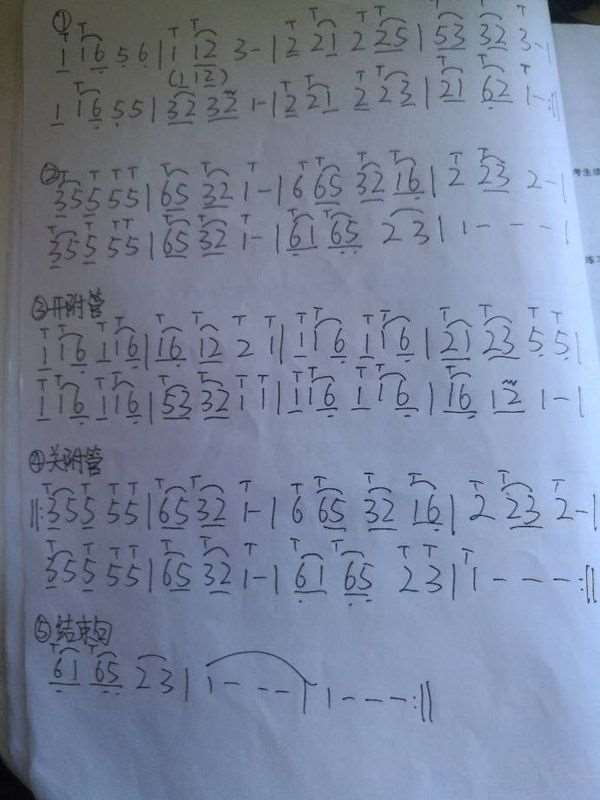 ①
1 1 6 5 6 | 1 1 2 3 - | 2 2 1 2 2 5 | 5 3 3 2 3 - |
(1 1 2)
1 1 6 5 5 | 3 2 3 2 1 - | 2 2 1 2 2 3 | 2 1 6 2 1 - :||
②
3 5 5 5 5 | 6 5 3 2 1 - | 6 6 5 3 2 1 6 | 2 2 3 2 - |
3 5 5 5 5 | 6 5 3 2 1 - | 6 1 6 5 2 3 | 1 - - - |
③开附管
1 1 6 1 1 6 | 1 6 1 2 2 1 | 1 1 6 1 1 6 | 2 1 2 3 5 5 |
1 1 6 1 1 6 | 5 3 3 2 1 1 | 1 1 6 1 1 6 | 1 6 1 2 1 - |
④关附管
||: 3 5 5 5 5 | 6 5 3 2 1 - | 6 6 5 3 2 1 6 | 2 2 3 2 - |
3 5 5 5 5 | 6 5 3 2 1 - | 6 1 6 5 2 3 | 1 - - - :||
⑤结束句
6 1 6 5 2 3 | 1 - - - | 1 - - - :||